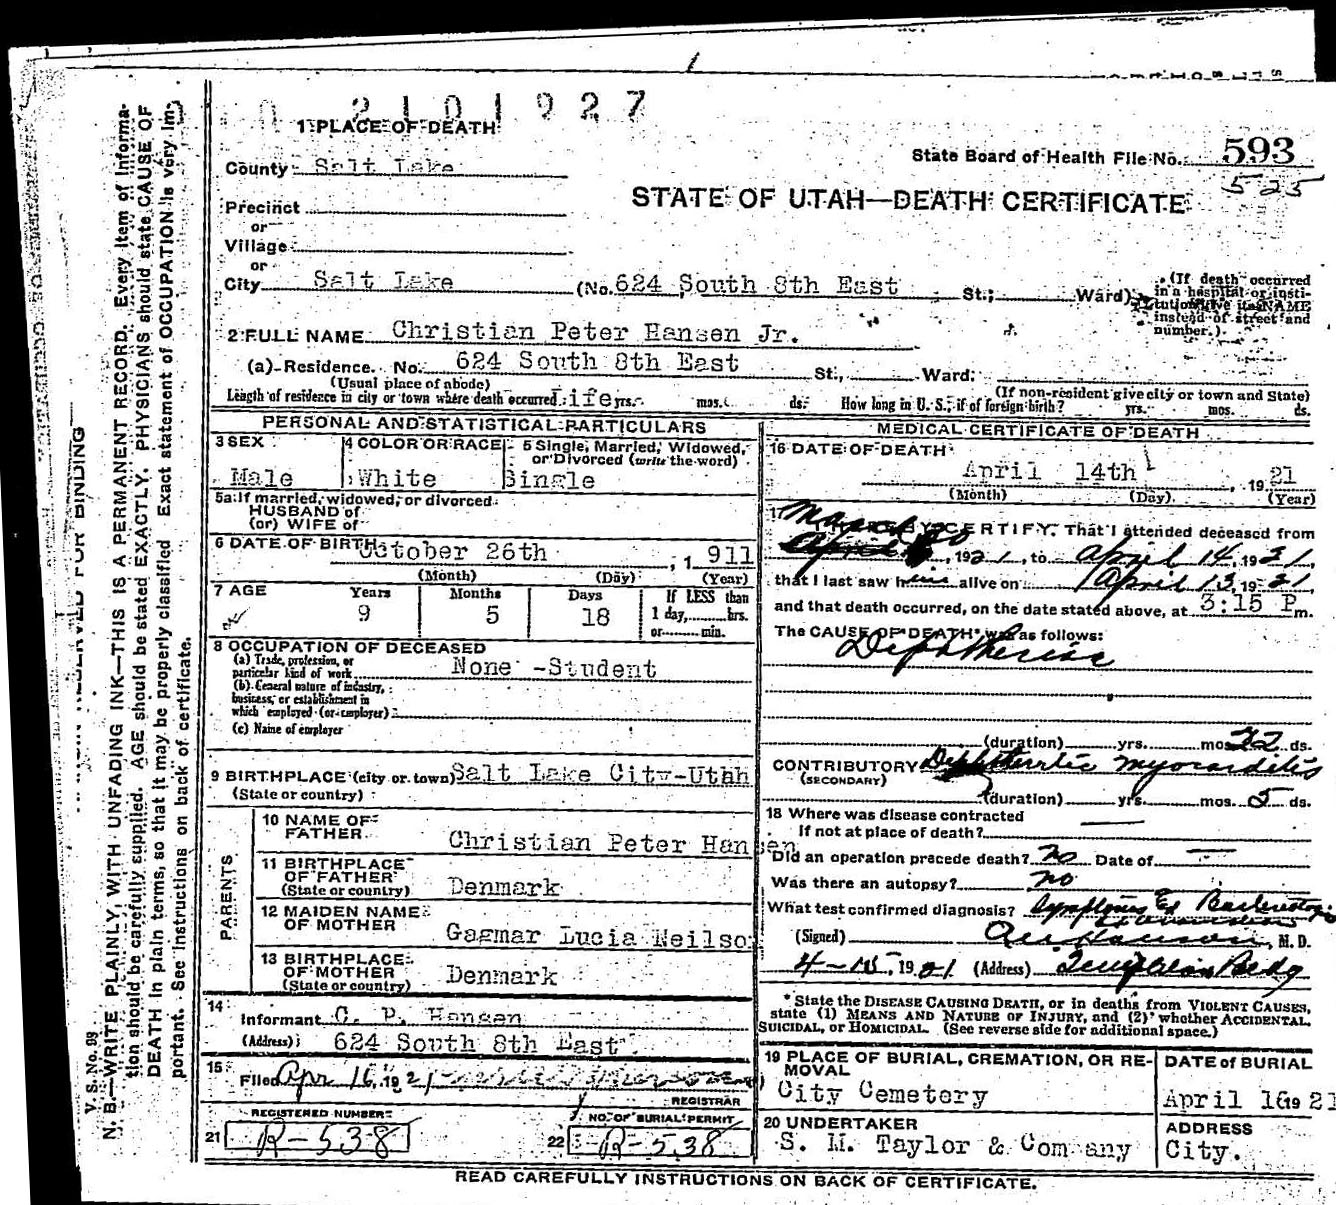 2101927
1 PLACE OF DEATH
County Salt Lake
State Board of Health File No. 593
525
STATE OF UTAH—DEATH CERTIFICATE
Precinct
or
Village
or
City Salt Lake (No. 624 South 8th East St.; Ward)
(If death occurred in a hospital or insti-
tution give its NAME
instead of street and
number.)
2 FULL NAME Christian Peter Hansen Jr.
(a) Residence. No. 624 South 8th East St., Ward.
(Usual place of abode) (If non-resident give city or town and State)
Length of residence in city or town where death occurred life yrs. mos. ds. How long in U. S., if of foreign birth? yrs. mos. ds.
PERSONAL AND STATISTICAL PARTICULARS
3 SEX Male
4 COLOR OR RACE White
5 Single, Married, Widowed,
or Divorced (write the word)
Single
5a If married, widowed, or divorced
HUSBAND of
(or) WIFE of
6 DATE OF BIRTH October 26th, 1911
(Month) (Day) (Year)
7 AGE Years Months Days If LESS than
9 5 18 1 day, hrs.
or min.
8 OCCUPATION OF DECEASED
(a) Trade, profession, or
particular kind of work None -Student
(b) General nature of industry,
business, or establishment in
which employed (or employer)
(c) Name of employer
9 BIRTHPLACE (city or town) Salt Lake City-Utah
(State or country)
PARENTS
10 NAME OF
FATHER Christian Peter Hansen
11 BIRTHPLACE
OF FATHER
(State or country) Denmark
12 MAIDEN NAME
OF MOTHER Gagmar Lucia Neilso
13 BIRTHPLACE
OF MOTHER
(State or country) Denmark
14
Informant C. P. Hansen
(Address) 624 South 8th East
15
Filed Apr 16, 1921
REGISTRAR
REGISTERED NUMBER
21 R-538
NO. OF BURIAL PERMIT
22 R-538
MEDICAL CERTIFICATE OF DEATH
16 DATE OF DEATH
April 14th, 1921
(Month) (Day) (Year)
17 March 20
HEREBY CERTIFY, That I attended deceased from
April, 1921, to April 14, 1921,
that I last saw him alive on April 13, 1921
and that death occurred, on the date stated above, at 3:15 P m.
The CAUSE OF DEATH* was as follows:
Diphtheria
(duration) yrs. mos. 22 ds.
CONTRIBUTORY Diphtheritic myocarditis
(SECONDARY)
(duration) yrs. mos. 5 ds.
18 Where was disease contracted
If not at place of death?
Did an operation precede death? no Date of
Was there an autopsy? no
What test confirmed diagnosis? Symptoms &
(Signed) Hanson, M. D.
4-15, 1921 (Address) Templeton Bldg
*State the DISEASE CAUSING DEATH, or in deaths from VIOLENT CAUSES,
state (1) MEANS AND NATURE OF INJURY, and (2) whether ACCIDENTAL,
SUICIDAL, OR HOMICIDAL. (See reverse side for additional space.)
19 PLACE OF BURIAL, CREMATION, OR RE-
MOVAL
City Cemetery
DATE of BURIAL
April 16 1921
20 UNDERTAKER
S. M. Taylor & Company
ADDRESS
City.
READ CAREFULLY INSTRUCTIONS ON BACK OF CERTIFICATE.
MARGIN RESERVED FOR BINDING
V. S. No. 99
N. B.—WRITE PLAINLY, WITH UNFADING INK—THIS IS A PERMANENT RECORD. Every item of informa-
tion should be carefully supplied. AGE should be stated EXACTLY. PHYSICIANS should state CAUSE OF
DEATH in plain terms, so that it may be properly classified. Exact statement of OCCUPATION is very im-
portant. See instructions on back of certificate.